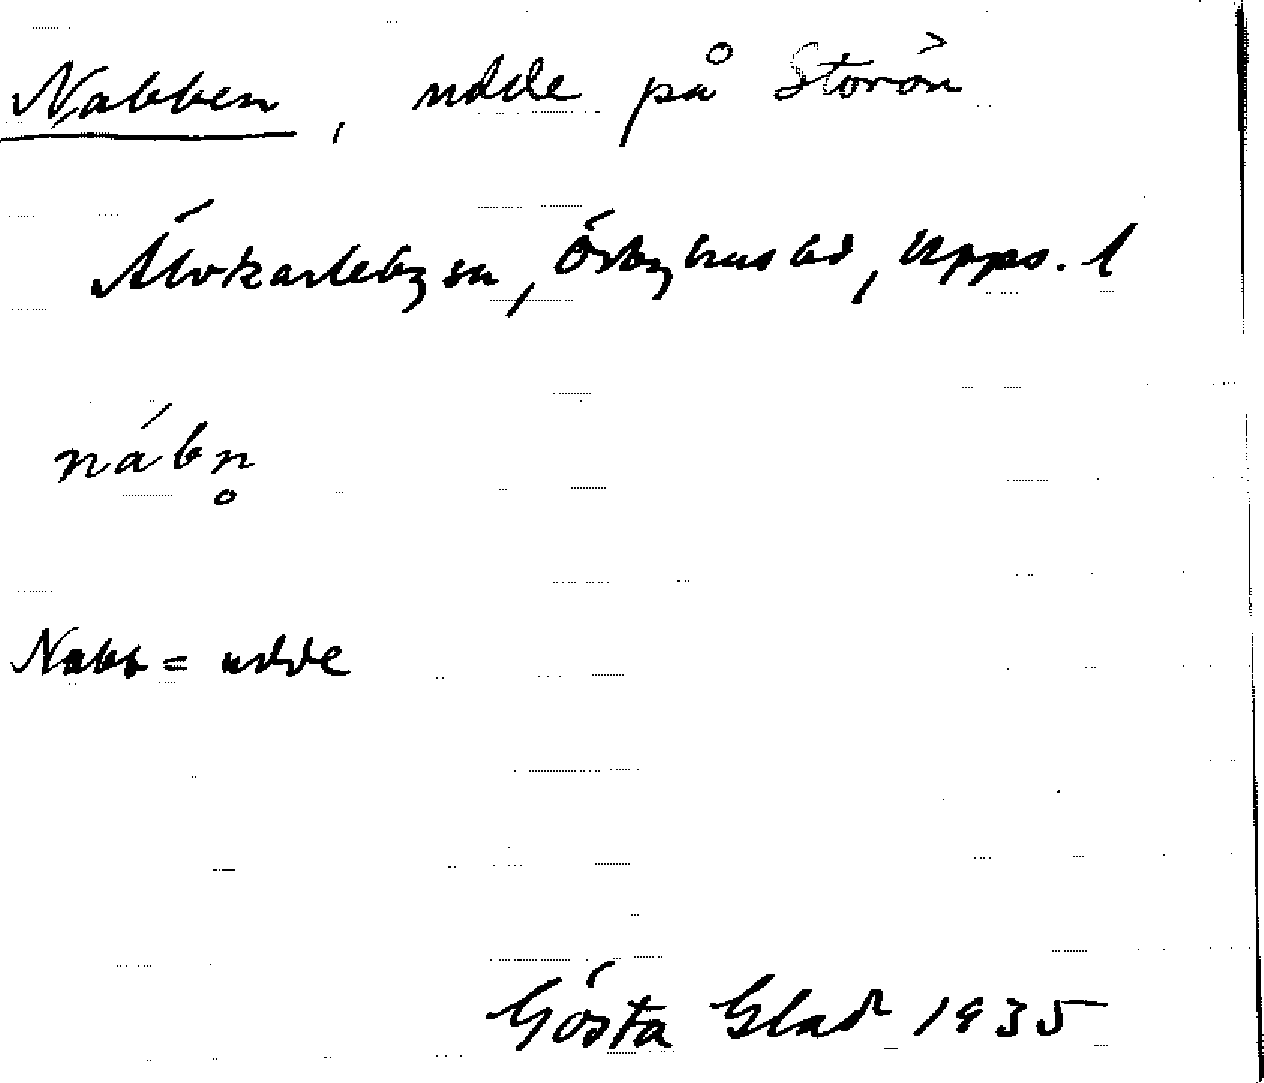 Nabben, udde på Storön
Älvkarleby sn, Örbyhus hd, Upps. l
nábn̥
Nabb = udde
Gösta Glad 1935